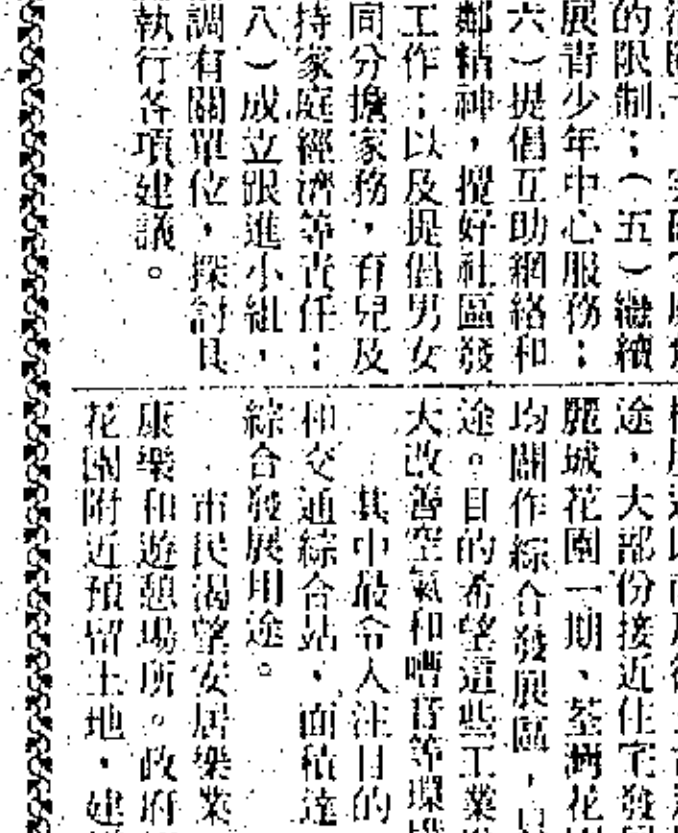 的限制；（五）繼續
展青少年中心服務；
六）提倡互助網絡和
鄰精神，攪好社區發
工作；以及提倡男女
同分擔家務，育兒及
持家庭經濟等責任；
八）成立跟進小組，
調有關單位，探討具
執行各項建議。
途，大部份接近住宅發
麗城花園一期、荃灣花
均關作綜合發展區，
途。目的希望這些工業
大改善空氣和嘈音等環
其中最令人注目的
和交通綜合站，面積達
綜合發展用途。
市民渴望安居樂業
康樂和遊憩場所。政府
花園附近預留土地，建